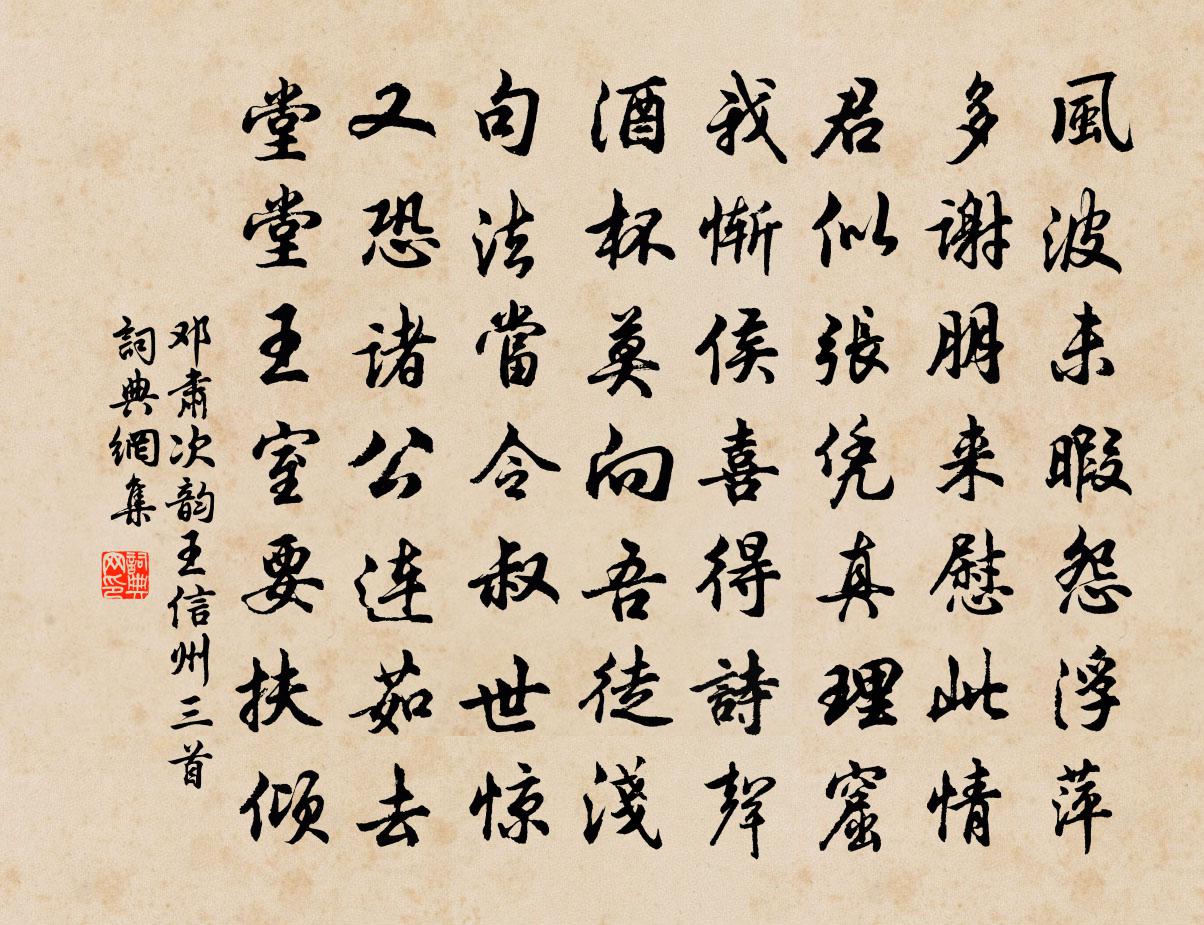 風波未暇怨浮萍
多謝朋来慰此情
君似張凭真理窟
我惭侯喜得詩聲
酒杯莫向吾徒淺
句法當令叔世惊
又恐諸公連茹去
堂堂王室要扶傾
邓肅次韵王信州三首
詞典網集
詞典网印